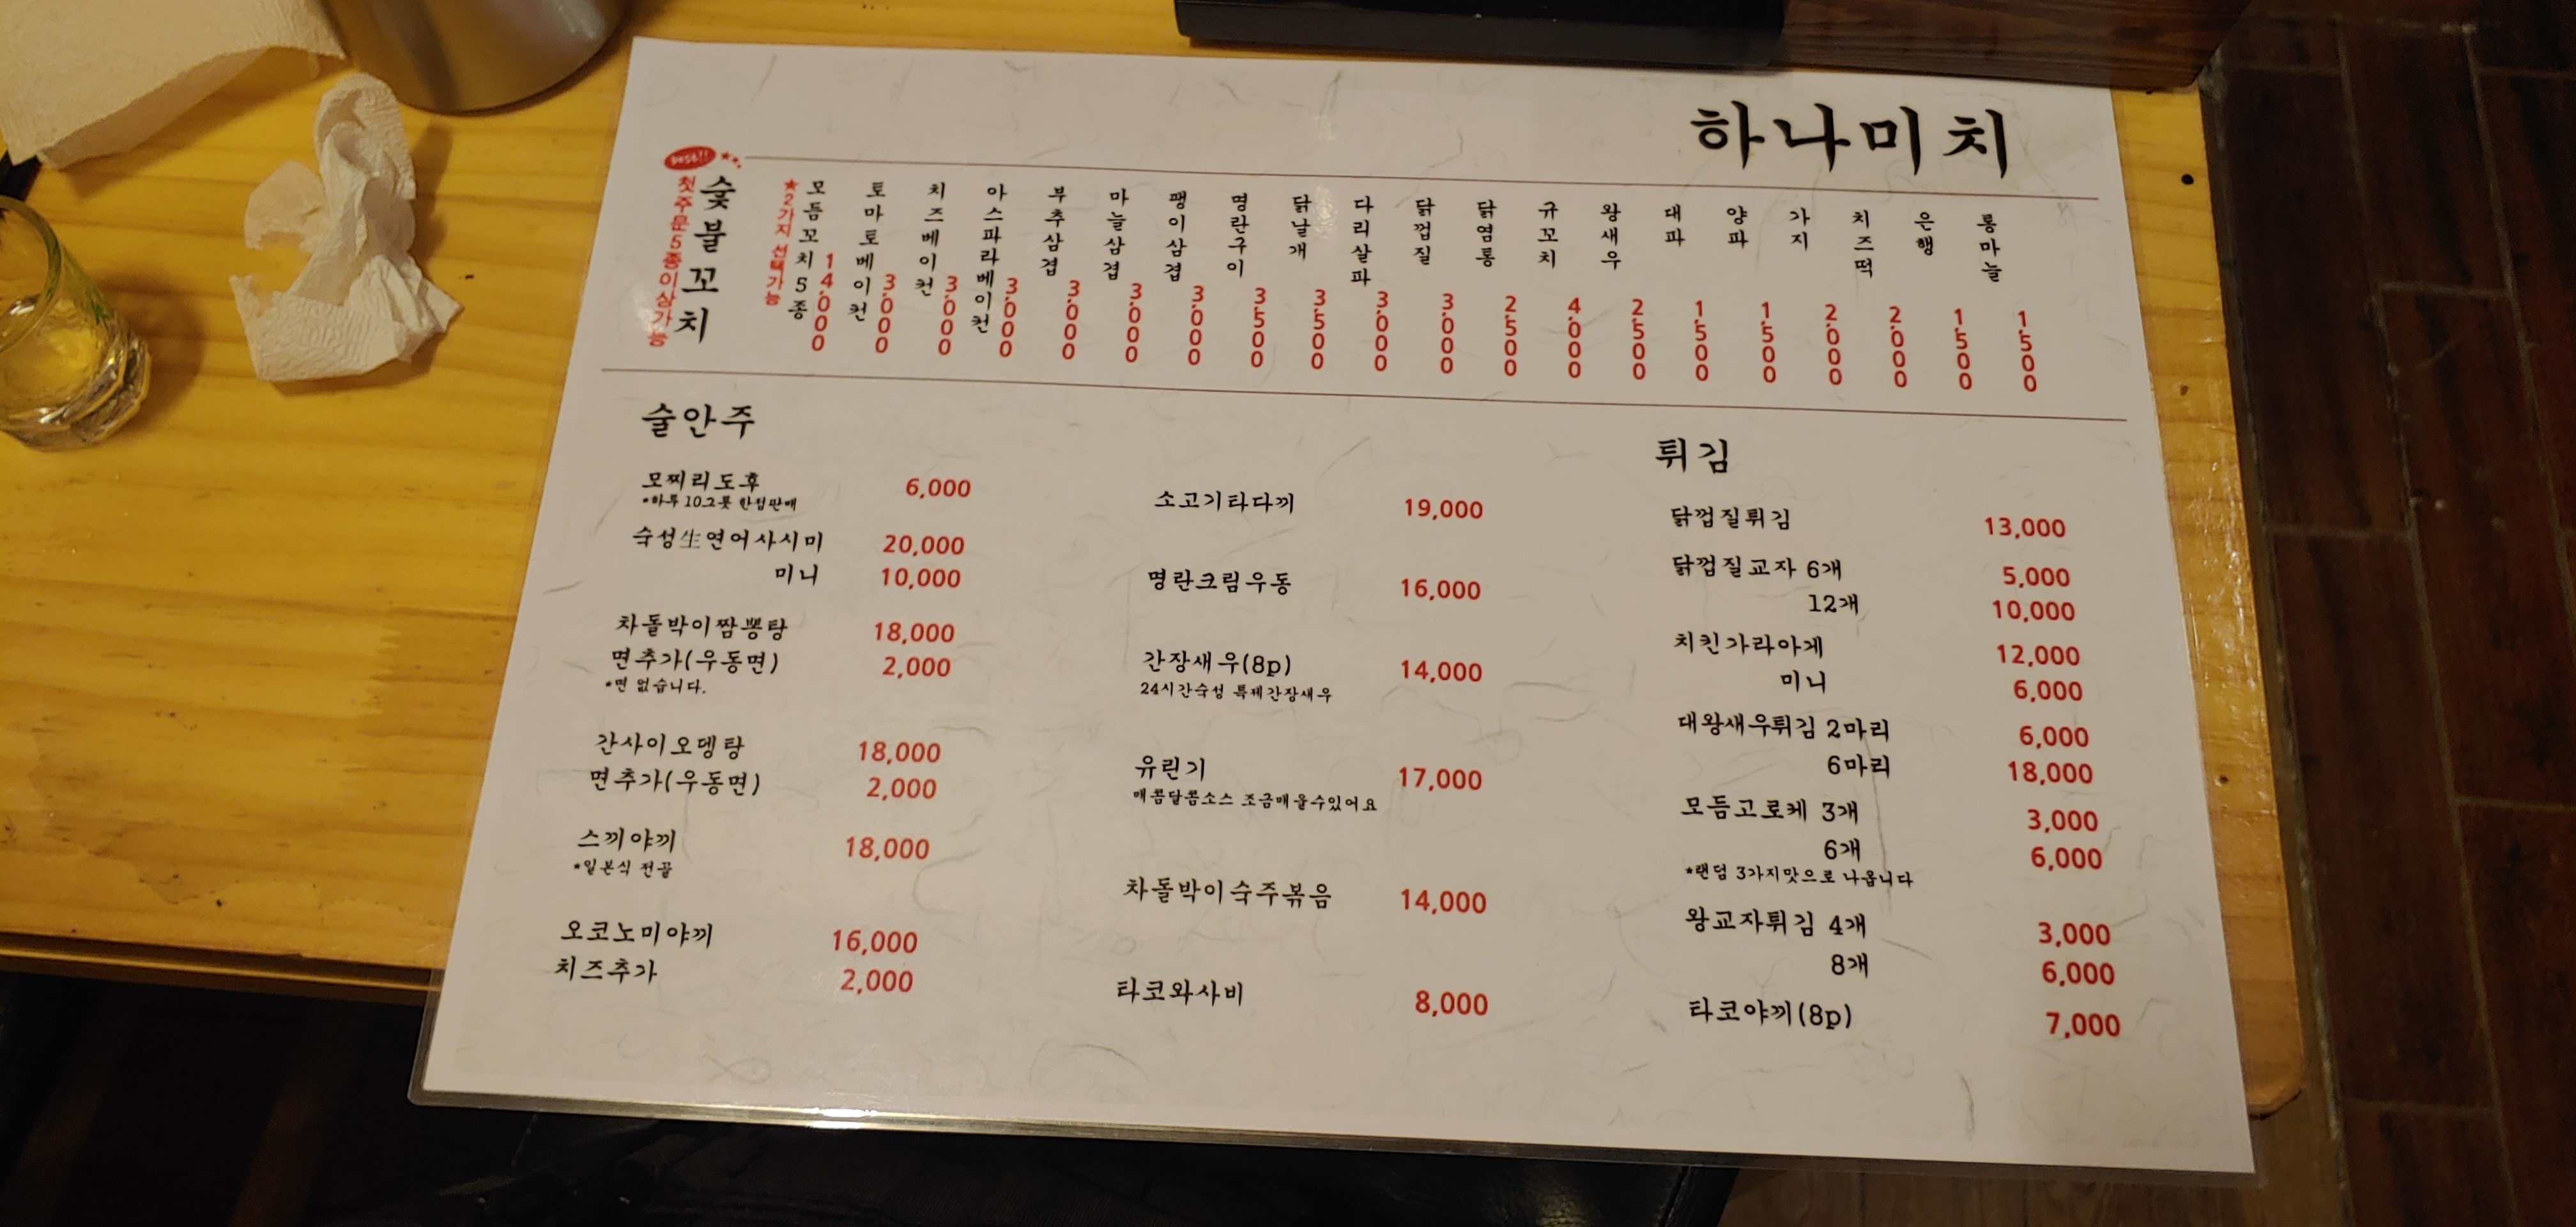 하나미치
Best!!
숯불꼬치
첫주문5종이상가능
모듬꼬치5종 14,000
★2가지 선택가능
토마토베이컨 3,000
치즈베이컨 3,000
아스파라베이컨 3,000
부추삼겹 3,000
마늘삼겹 3,000
팽이삼겹 3,000
명란구이 3,500
닭날개 3,500
다리살파 3,000
닭껍질 3,000
닭염통 2,500
규꼬치 4,000
왕새우 2,500
대파 1,500
양파 1,500
가지 2,000
치즈떡 2,000
은행 1,500
통마늘 1,500
술안주
모찌리도후 6,000
*하루 10그릇 한정판매
숙성生연어사시미 20,000
미니 10,000
차돌박이짬뽕탕 18,000
면추가(우동면) 2,000
*면 없습니다.
간사이오뎅탕 18,000
면추가(우동면) 2,000
스끼야끼 18,000
*일본식 전골
오코노미야끼 16,000
치즈추가 2,000
소고기타다끼 19,000
명란크림우동 16,000
간장새우(8p) 14,000
24시간숙성 특제간장새우
유린기 17,000
매콤달콤소스 조금매울수있어요
차돌박이숙주볶음 14,000
타코와사비 8,000
튀김
닭껍질튀김 13,000
닭껍질교자 6개 5,000
12개 10,000
치킨가라아게 12,000
미니 6,000
대왕새우튀김 2마리 6,000
6마리 18,000
모듬고로케 3개 3,000
6개 6,000
*랜덤 3가지맛으로 나옵니다
왕교자튀김 4개 3,000
8개 6,000
타코야끼(8p) 7,000